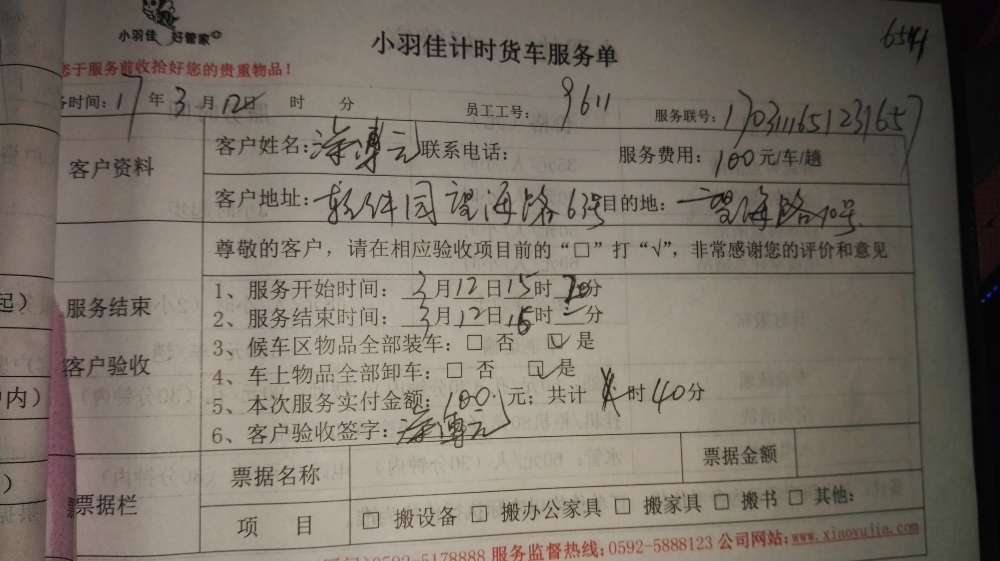 小羽佳 好管家
小羽佳计时货车服务单
您于服务前收拾好您的贵重物品！
务时间：17年3月12日 时 分 员工工号：9611 服务联号：
客户资料 客户姓名： 联系电话： 服务费用：100元/车/趟
客户地址：软件园望海路63号 目的地：望海路10号
尊敬的客户，请在相应验收项目前的“□”打“√”，非常感谢您的评价和意见
服务结束
客户验收
1、服务开始时间：3月12日15时20分
2、服务结束时间：3月12日16时 分
3、候车区物品全部装车：□ 否 ☑ 是
4、车上物品全部卸车：□ 否 ☑ 是
5、本次服务实付金额：100.元；共计 时40分
6、客户验收签字：
票据栏 票据名称 票据金额
项 目 □ 搬设备 □ 搬办公家具 □ 搬家具 □ 搬书 □ 其他：
0592-5178888 服务监督热线：0592-5888123 公司网站：www.xiaoyujia.com